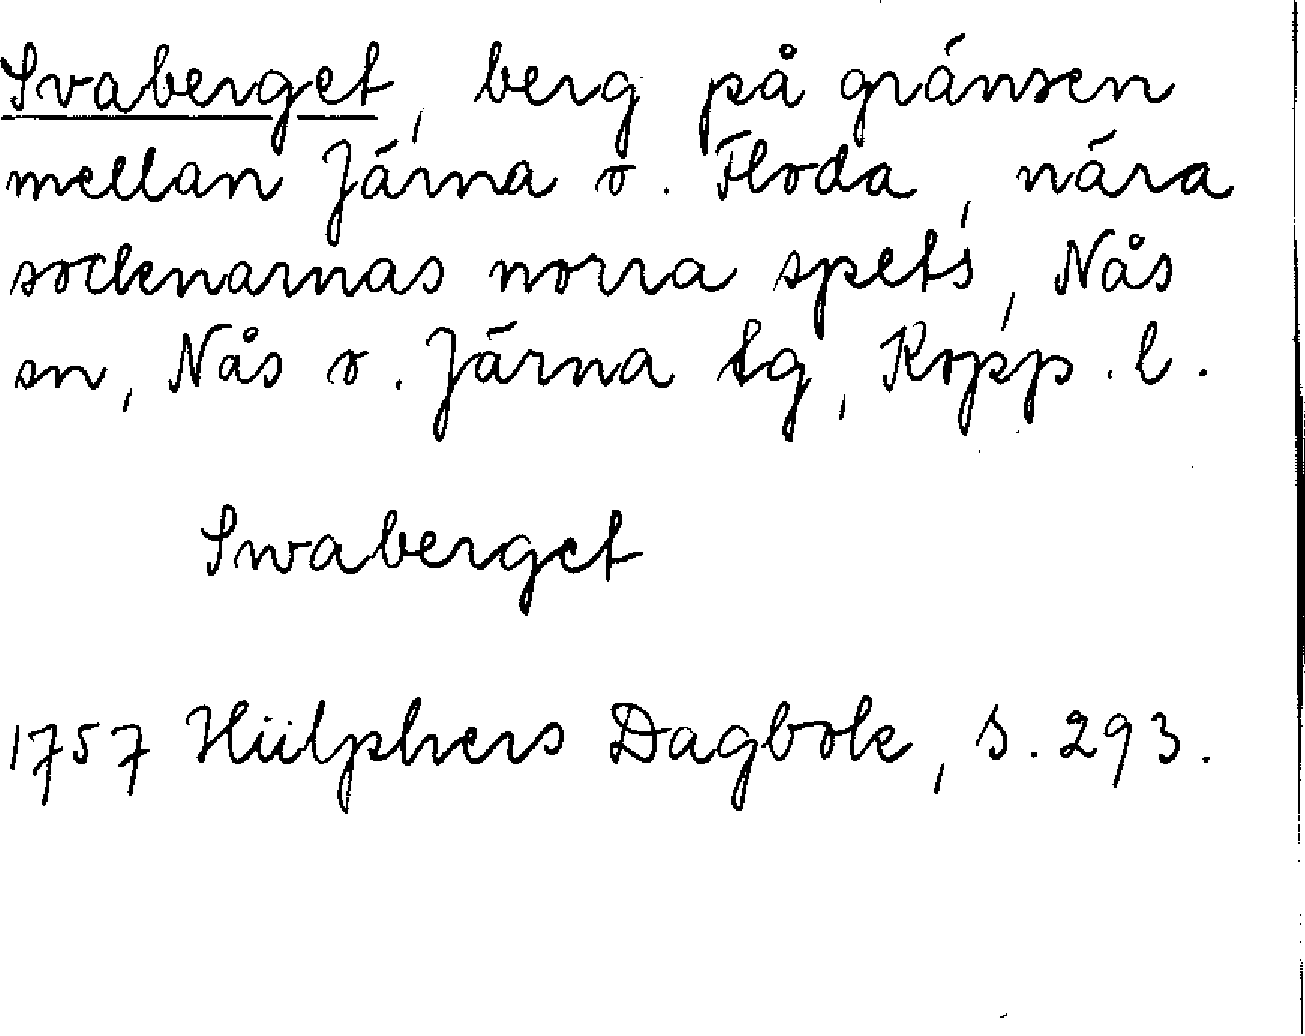 Svaberget, berg på gränsen
mellan Järna o. Floda, nära
socknarnas norra spets, Nås
sn, Nås o. Järna tg, Kopp. l.
Swaberget
1757 Hülphers Dagbok, s. 293.